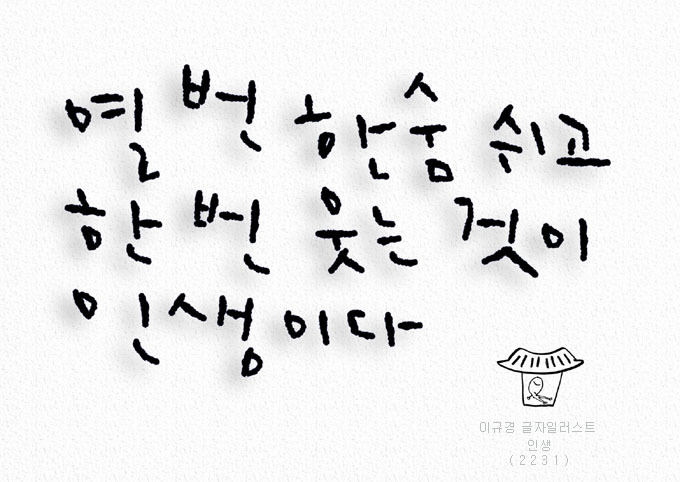 열 번 한숨 쉬고
한 번 웃는 것이
인생이다
이규경 글자일러스트
인생
(2231)